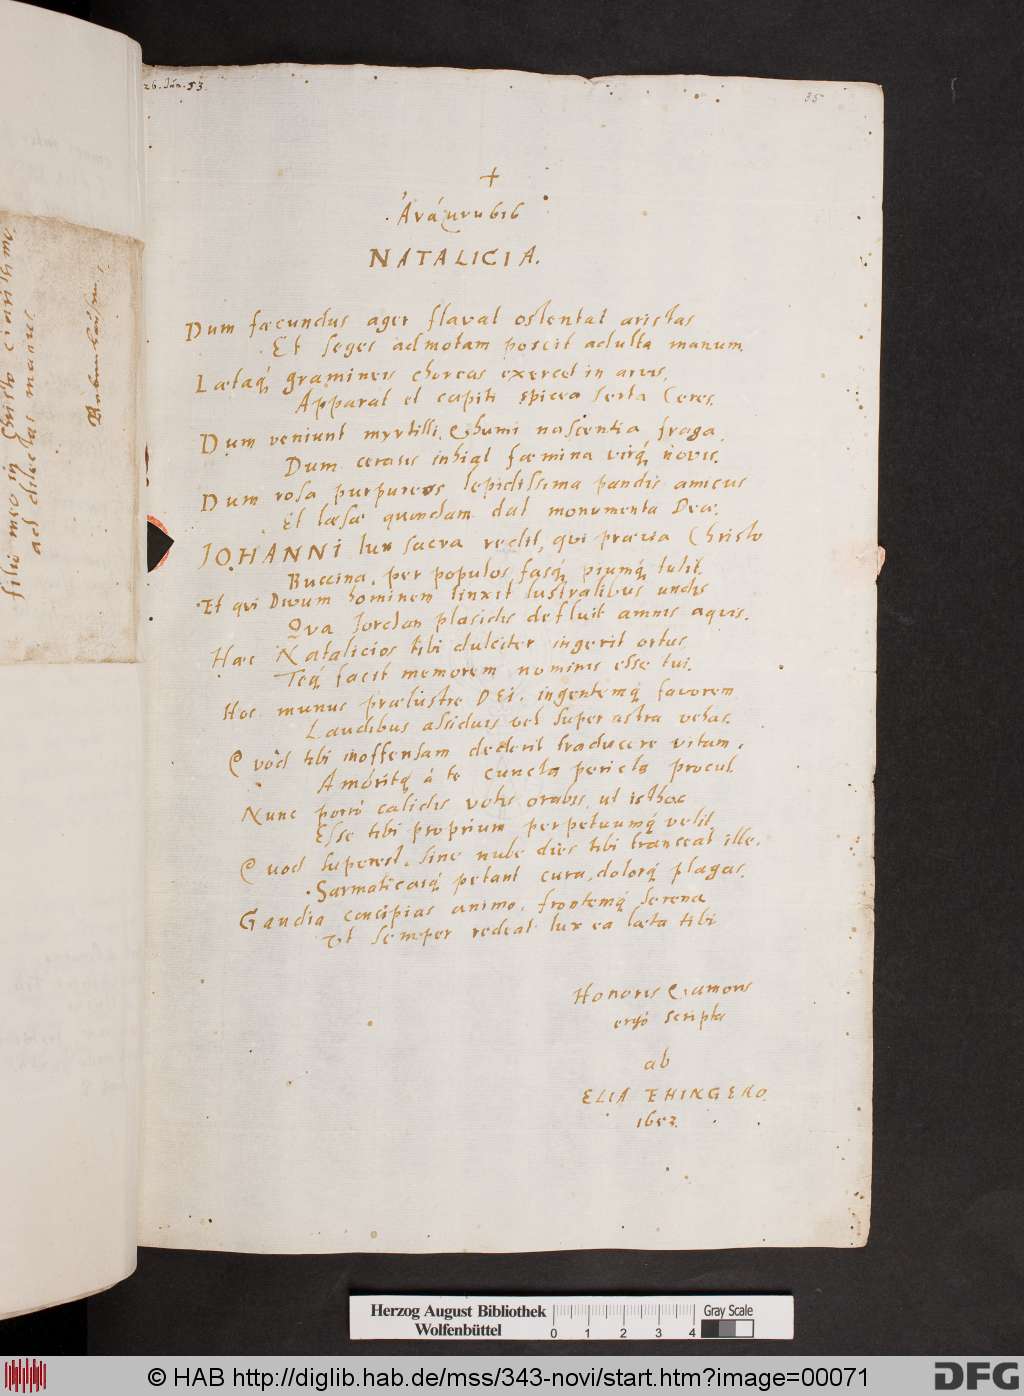 26. Jun. 53
35
+
Ἀνάμνησις
NATALICIA.
Dum fæcundus ager flavat ostentat aristas
Et seges admotam poscit adulta manum.
Lætaq́ gramineis choreas exercet in arvis,
Apparat et capiti spicea serta Ceres.
Dum veniunt myrtilli, & humi nascentia fraga,
Dum cerasis inhiat fæmina virq́ novis.
Dum rosa purpureos lepidissima pandit amictus
Et læsæ quondam dat monumenta Deæ.
JOHANNI lux sacra redit, qui prævia Christo
Buccina, per populos fasq́ piumq́ tulit.
Et qui Divum hominem tinxit lustralibus undis
Qva Jordan placidis defluit amnis aquis.
Hæc Natalicios tibi dulciter ingerit ortus
Teq́ facit memorem nominis esse tui.
Hoc munus prælustre DEI, ingentemq́ favorem
Laudibus assiduis vel super astra vehas.
Qvòd tibi inoffensam dederit traducere vitam,
Amôritq́ à te cuncta pericla procul.
Nunc porrò calidis votis orabis, ut isthæc
Esse tibi proprium perpetuumq́ velit,
Qvod superest, sine nube dies tibi transeat ille,
Sarmaticasq́ petant cura, dolorq́ plagas.
Gaudia concipias animo, frontemq́ serena
Ut semper redeat lux ea læta tibi
Honoris & amoris
ergò scripta
ab
ELIA EHINGERO.
1653.
filio meo in Christo
ad dilectas manus
Herzog August Bibliothek
Wolfenbüttel
0 1 2 3 4
Gray Scale
© HAB http://diglib.hab.de/mss/343-novi/start.htm?image=00071
DFG